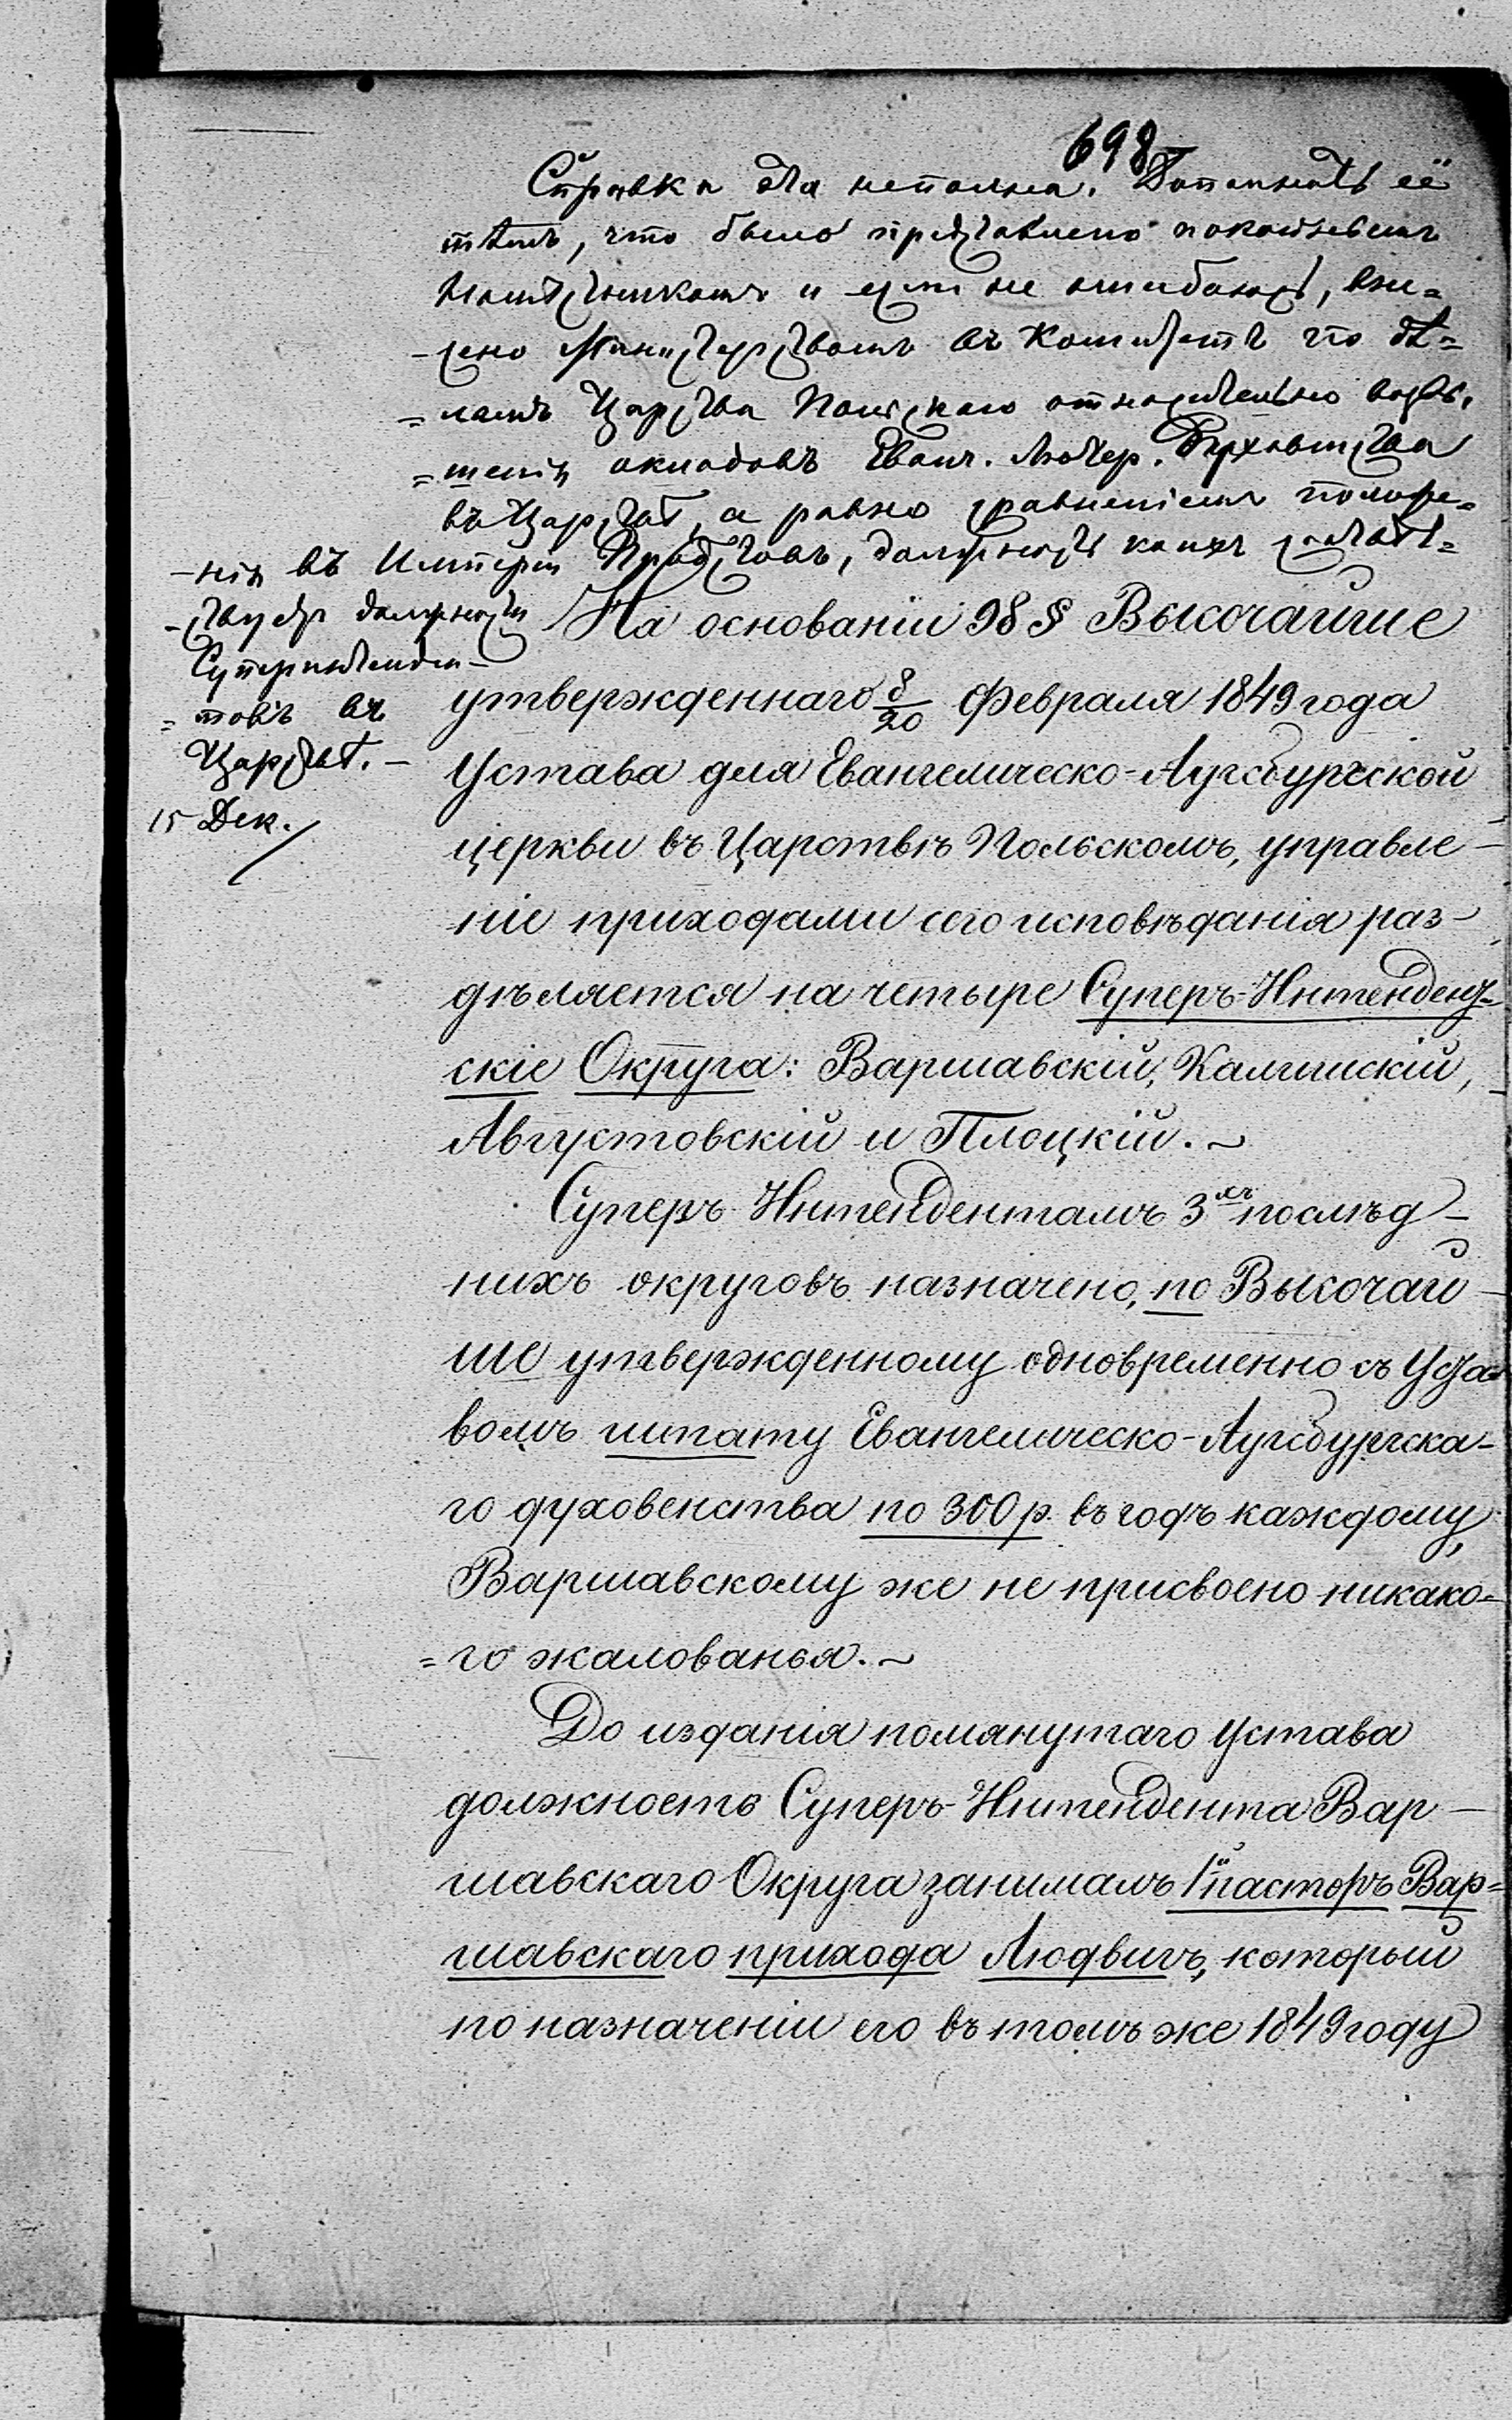 698
Справка эта неполна. Дополнить её
тѣмъ, что было представлено покойнымъ
Намѣстникомъ и если не ошибаюсь, вне=
-сено Министерствомъ въ Комитетъ по дѣ=
=ламъ Царства Польскаго относительно возвы,
=шенія окладовъ Еванг. Лютер. Духовенства
въ Царствѣ, а равно сравненіемъ положе=
-нія въ Имперіи Пробстовъ, должность коихъ соотвѣт=
-ствуетъ должности
Суперинтенден-
=товъ въ
Царствѣ. -
15 Дек.
На основаніи 98 § Высочайше
утвержденнаго 8/20 Февраля 1849 года
Устава для Евангелическо-Аугсбургской
церкви въ Царствѣ Польскомъ, управле-
ніе приходами сего исповѣданія раз-
дѣляется на четыре Суперъ-Интендент-
скіе Округа: Варшавскій, Калишскій,
Августовскій и Плоцкій. ~
Суперъ-Интендентамъ 3хъ послѣд-
нихъ округовъ назначено, по Высочай-
ше утвержденному одновременно съ Уста=
вомъ штату Евангелическо-Аугсбургска-
го духовенства по 300 р. въ годъ каждому,
Варшавскому же не присвоено никако=
=го жалованья. ~
До изданія помянутаго Устава
должность Суперъ-Интендента Вар-
шавскаго Округа занималъ 1й пасторъ Вар=
шавскаго прихода Людвигъ, который
по назначеніи его въ томъ же 1849 году